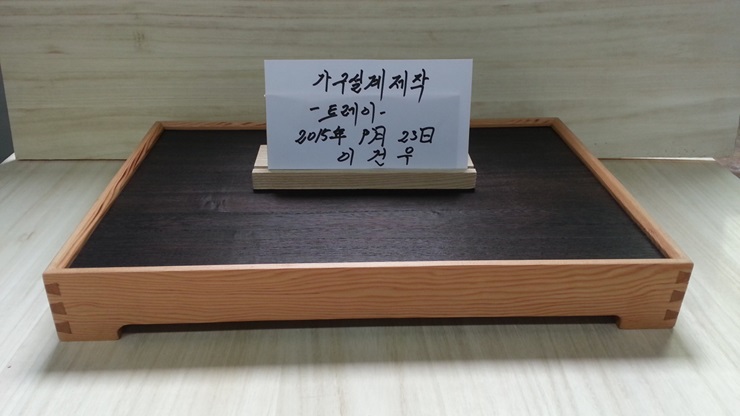 가구설계제작
-트레이-
2015年 9月 23日
이건우